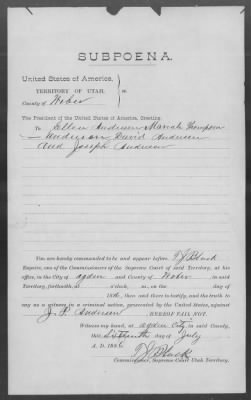 SUBPOENA.
United States of America,
TERRITORY OF UTAH, } ss.
County of Weber
The President of the United States of America, Greeting:
To Ellen Anderson Mariah Thompson
Anderson David Anderson
and Joseph Anderson
You are hereby commanded to be and appear before
Esquire, one of the Commissioners of the Supreme Court of said Territory, at
his office, in the City of Ogden and County of Weber in said
Territory, forthwith, at o'clock, m., on the day of
188, then and there to testify, and the truth to
say, as a witness in a criminal notice, prosecuted by the United States, against
Anderson HEREOF FAIL NOT.
Witness my hand, at Ogden City, in said County,
this day of July
A. D. 1886
Commissioner, Supreme Court Utah Territory.